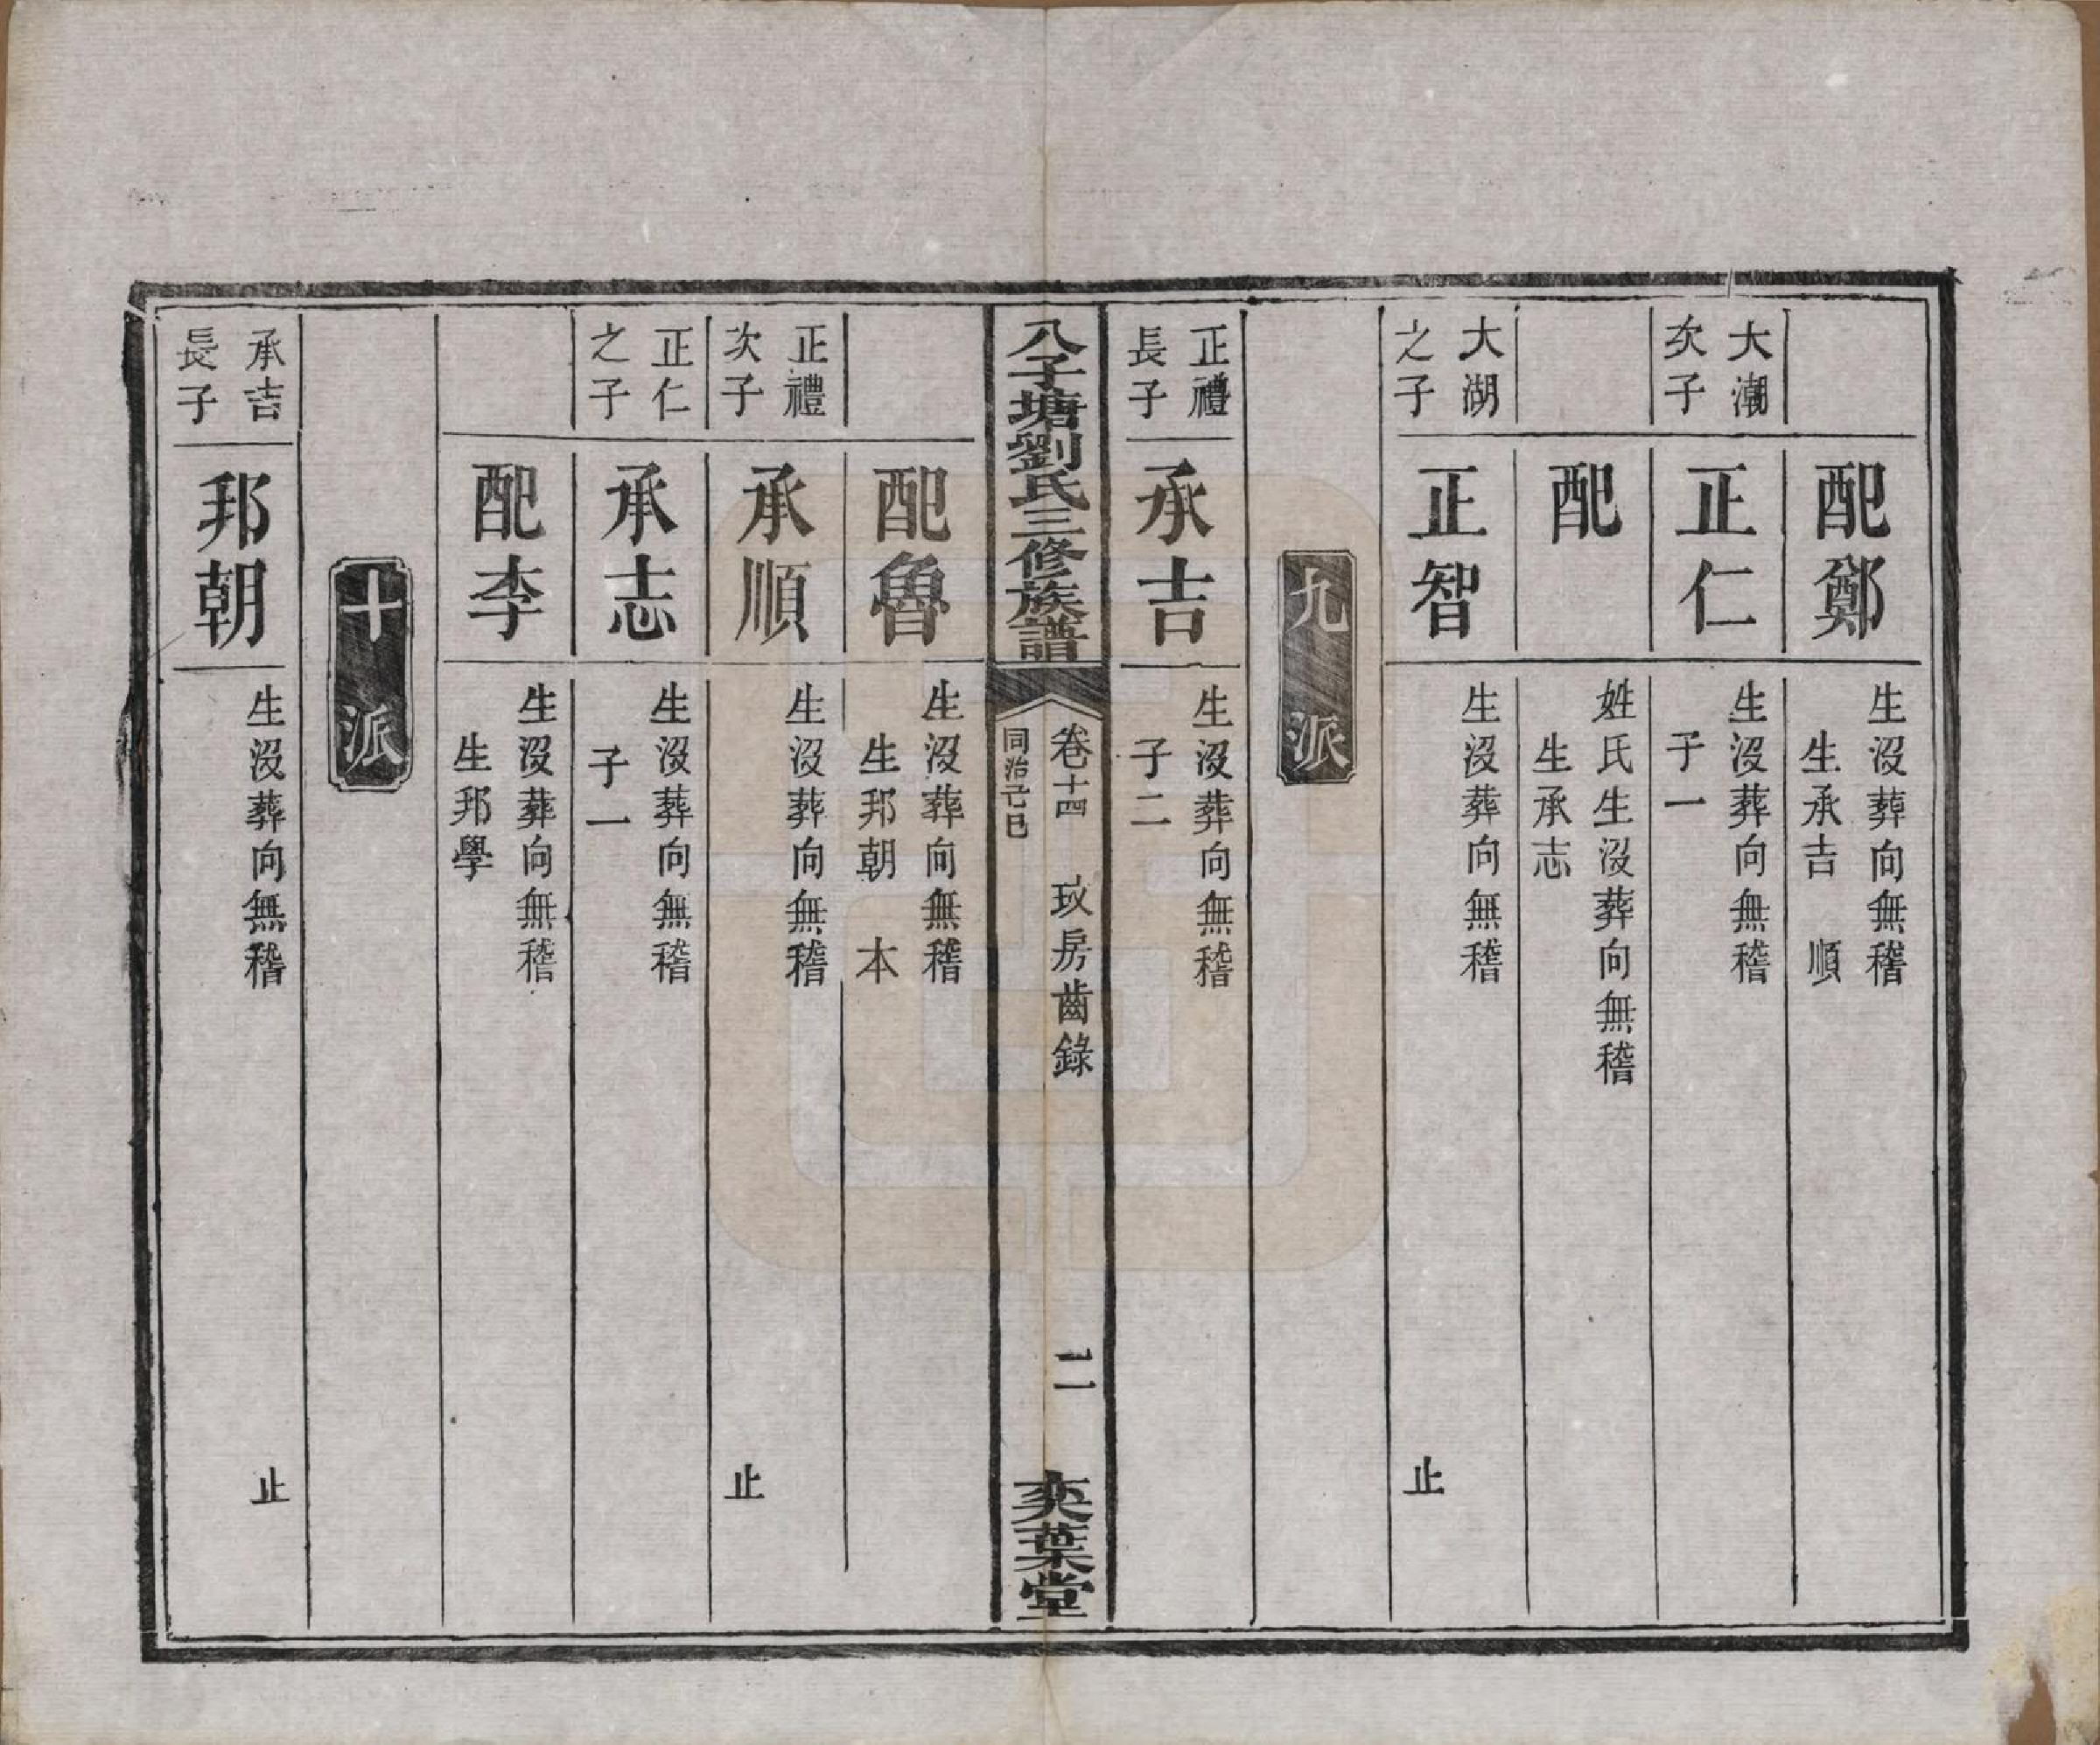 配鄭
生沒葬向無稽
生承吉 順
大潮
次子
正仁
生沒葬向無稽
子一
配
姓氏生沒葬向無稽
生承志
大湖
之子
正智
生沒葬向無稽
止
九派
正禮
長子
承吉
生沒葬向無稽
子二
八子塘劉氏三修族譜
卷十四 玟房齒錄
同治己巳
二
奕葉堂
配魯
生沒葬向無稽
生邦朝 本
正禮
次子
承順
生沒葬向無稽
止
正仁
之子
承志
生沒葬向無稽
子一
配李
生沒葬向無稽
生邦學
十派
承吉
長子
邦朝
生沒葬向無稽
止